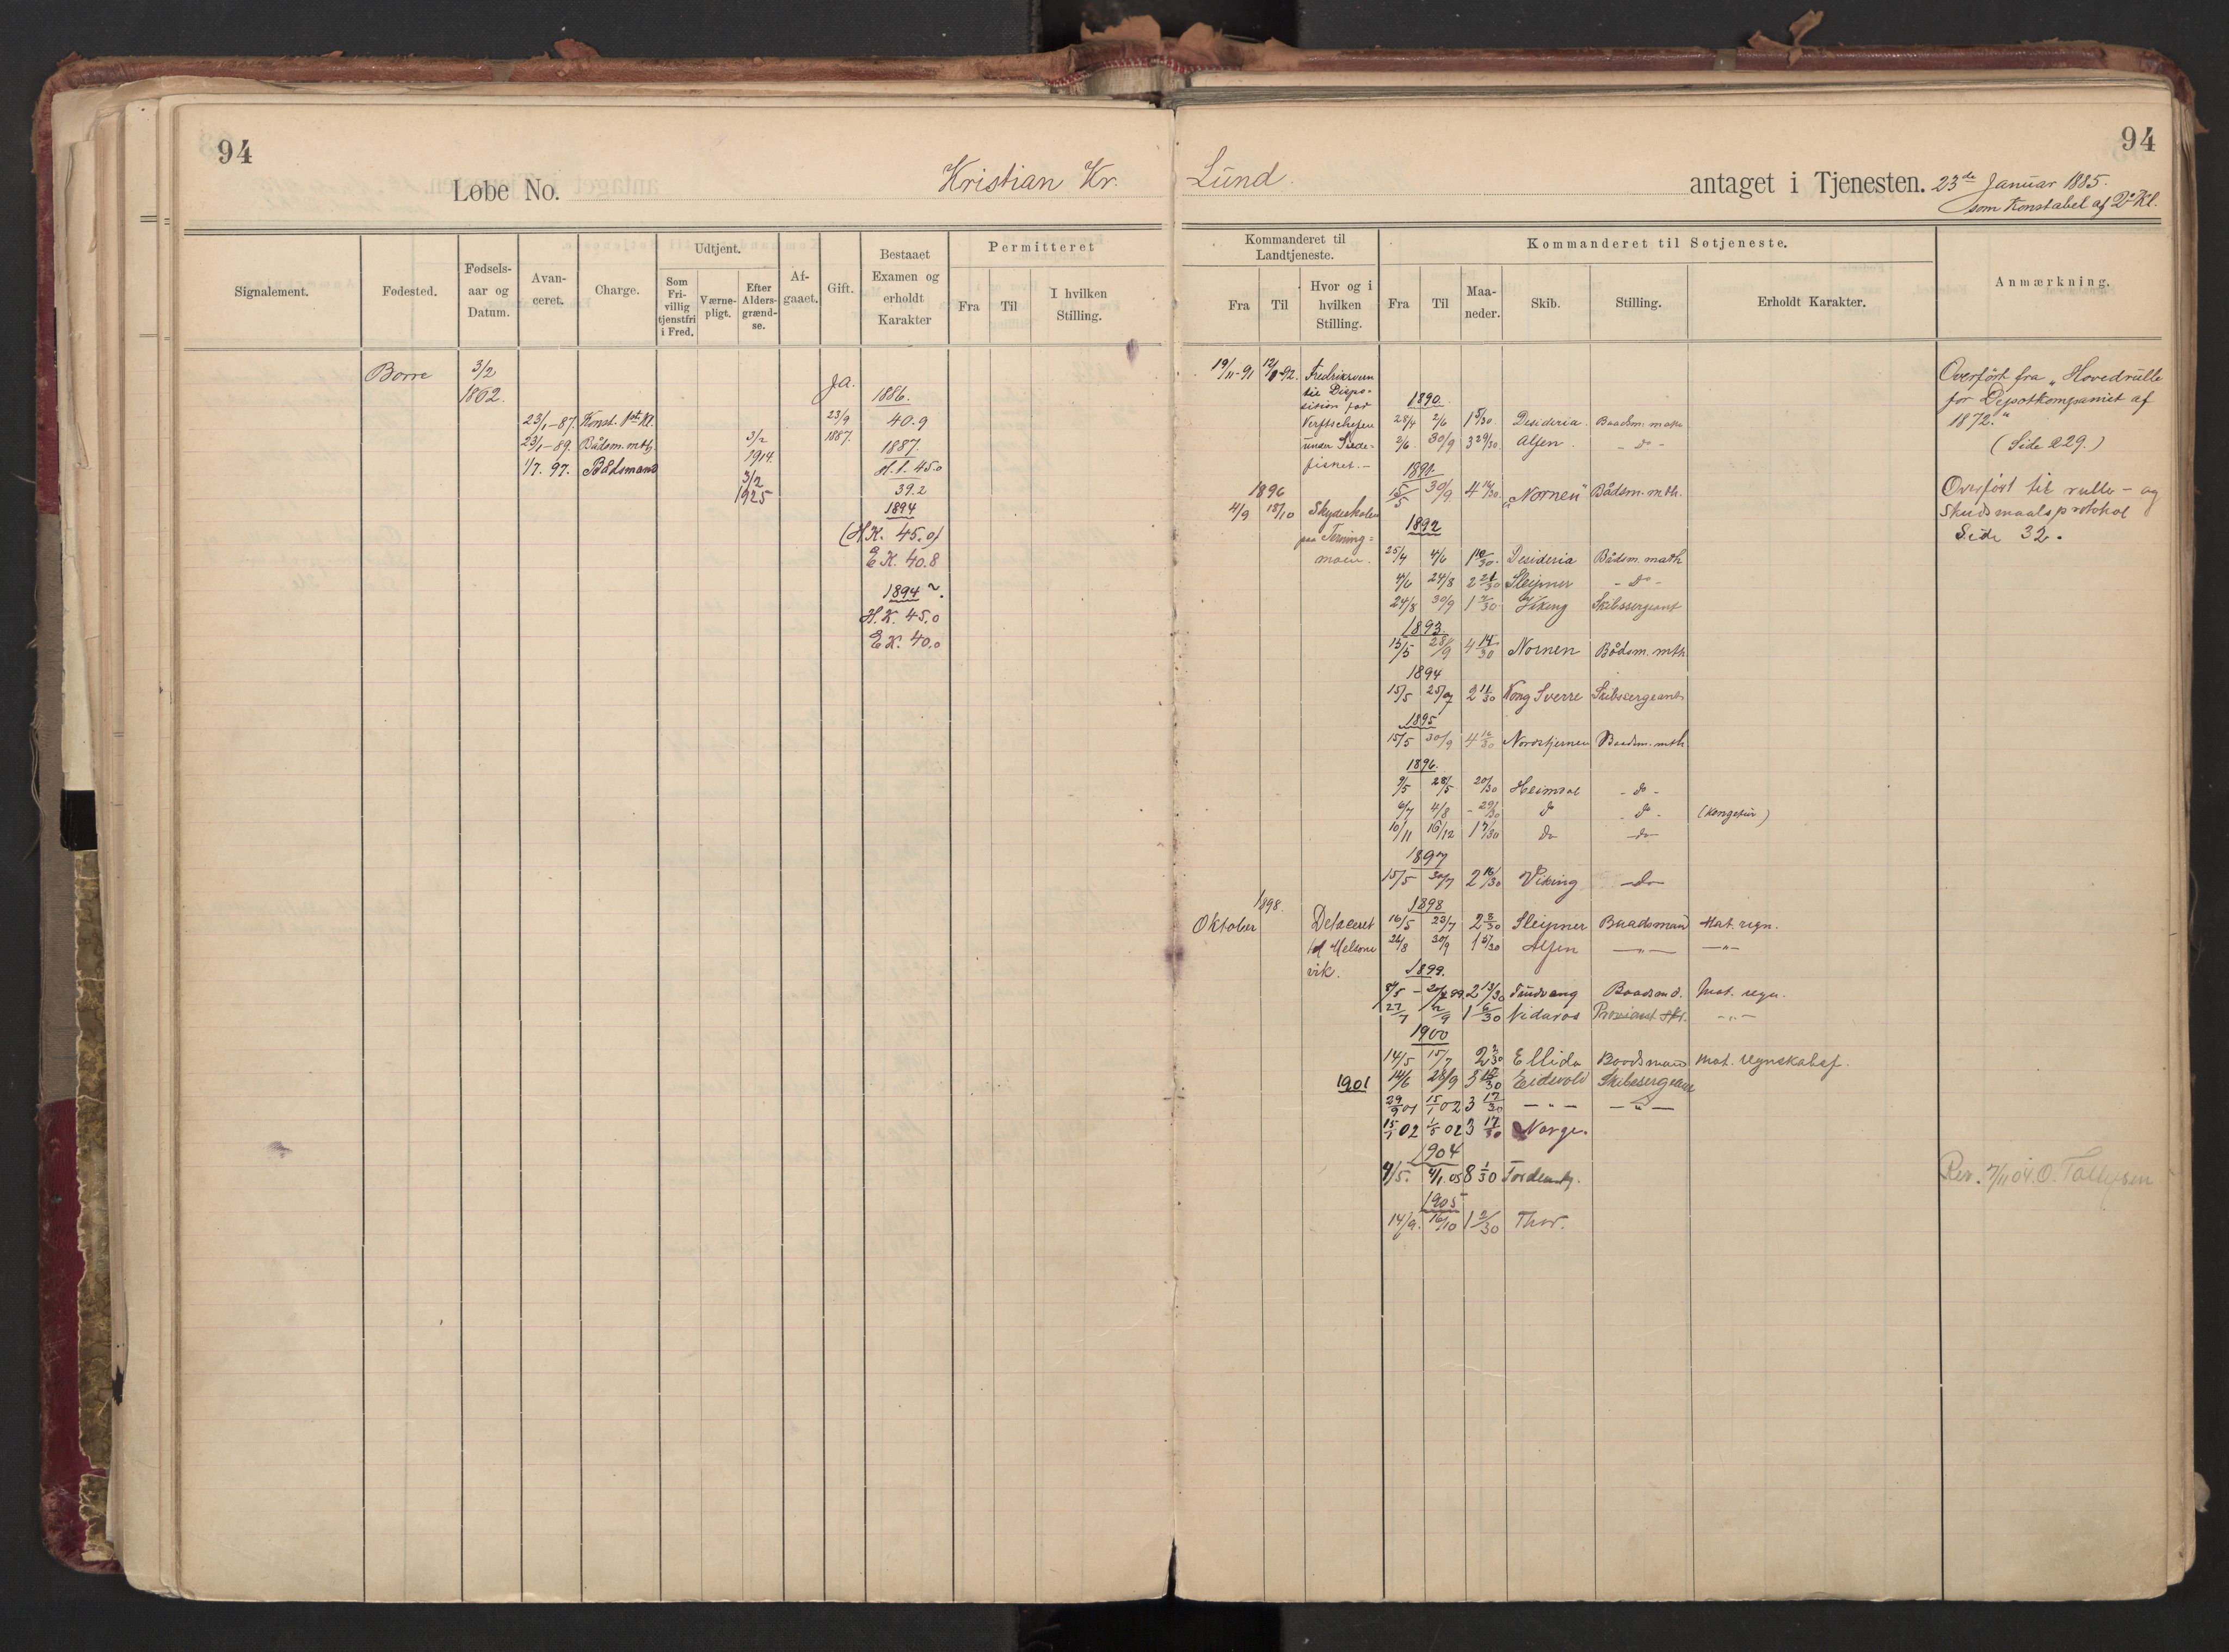 94
Løbe No.
Kristian Kr.
Signalement.
Fødested.
Fødsels-
aar og
Datum.
Avan-
ceret.
Charge.
Udtjent.
Som
Fri-
villig
tjenstfri
i Fred.
Værne-
pligt.
Efter
Alders-
grænd-
se.
Af-
gaaet.
Gift.
Bestaaet
Examen og
erholdt
Karakter
Permitteret
Fra
Til
I hvilken
Stilling.
Borre
3/2
1862.
23/1-87. Konst. 1ste Kl.
23/1-89. Bådsm. mth.
1/7. 97. Bådsmand
3/2
1914
3/2
1925
Ja.
23/9
1887.
1886.
40.9
1887.
H.K. 45.0
39.2
1894
(H.K. 45.0)
E K. 40.8
1894
H.K. 45.0
E K. 40.0
94
Lund.
antaget i Tjenesten. 23de Januar 1885.
som Konstabel af 2. Kl.
Kommanderet til
Landtjeneste.
Fra
Til
Hvor og i
hvilken
Stilling.
Kommanderet til Søtjeneste.
Fra
Til
Maa-
neder.
Skib.
Stilling.
Erholdt Karakter.
Anmærkning.
19/11-91 12/-92. Fredriksvern
til Dispo-
sition for
Verftschefen
under
1896
4/9 18/10 Skydeskolen
paa Terning-
moen.
1898.
Oktober Detaceret
til Melsom
vik.
1890.
28/4 2/6 1 5/30 Desideria. Baadsm. math
2/6. 30/9 3 29/30 Alfen. - do -
1891.
15/5 30/9 4 16/30 "Nornen" Bådsm. mth.
1892
25/4 4/6 1 10/30 Desideria Bådsm. math
4/6 24/8 2 21/30 Sleipner - do -
24/8 30/9 1 7/30 Viking Skibssergeant
1893.
15/5 28/9 4 14/30 Nornen Bådsm. mth
1894
15/5 25/7 2 11/30 Kong Sverre Skibssergeant
1895
15/5 30/9 4 16/30 Nordstjernen Baadsm. mth.
1896.
9/5 28/5 20/30 Heimdal - do -
6/7 4/8 - 29/30 do do - (Kongetur)
10/11 16/12 1 7/30 do do
1897
15/5 30/7 2 16/30 Viking - do -
1898
16/5 23/7 2 8/30 Sleipner Baadsmand Mat. regn.
26/8 30/9 1 5/30 Alfen - " - - " -
1899.
2 13/30 Baadsmd. Mat. regn.
27/7 2/9 1 6/30 Nidaros Proviant skr. - " -
1900
14/5 15/7 2 2/30 Ellida Baadsmand Mat. regnskabsf.
1901 14/6 28/9 3 15/30 Eidsvold Skibssergeant
29/9 01 15/1 02 3 17/30 - " - - " -
15/1 02 1/5 02 3 17/30 Norge.
1904
4/5. 4/1. 05 8 1/30 Tordensk.
1905
14/9. 16/10 1 2/30 Thor.
Overført fra "Hovedrulle
for Depotkompaniet af
1872."
(Side 229.)
Overført til rulle- og
Skudsmaalsprotokol
Side 32.
Rev. 7/11 04. O. Tollefsen